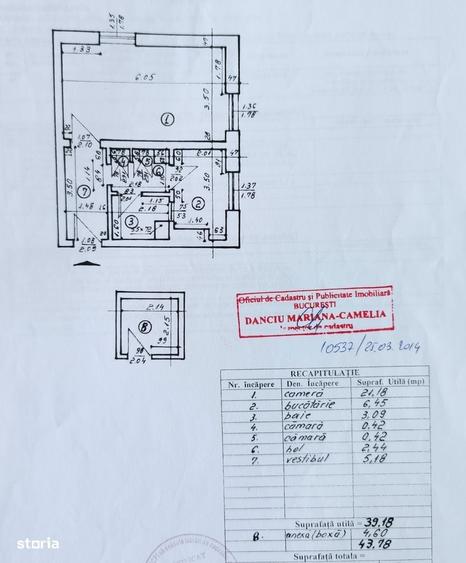 1.35
1.78
1.83
47
1.78
6.05
47
3.50
1.36
1.78
1
28
1.07
2.10
2.01
47
3.50
1.14
7
6
2.18
3.50
1.37
1.78
2
1.48
16
1.15
75
2.18
53
1.40
3
1.60
63
1.08
2.09
46
2.14
8
2.15
99
98
2.04
Oficiul de Cadastru și Publicitate Imobiliară
BUCUREȘTI
DANCIU MARIANA-CAMELIA
10537/25.03.2014
RECAPITULAȚIE
Nr. încăpere Den. Încăpere Supraf. Utilă (mp)
1. cameră 21,18
2. bucătărie 6,45
3. baie 3,09
4. cămară 0,42
5. cămară 0,42
6. hol 2,44
7. vestibul 5,18
Suprafață utilă = 39,18
8. anexă (boxă) 4,60
43,78
Suprafață totală =
storia